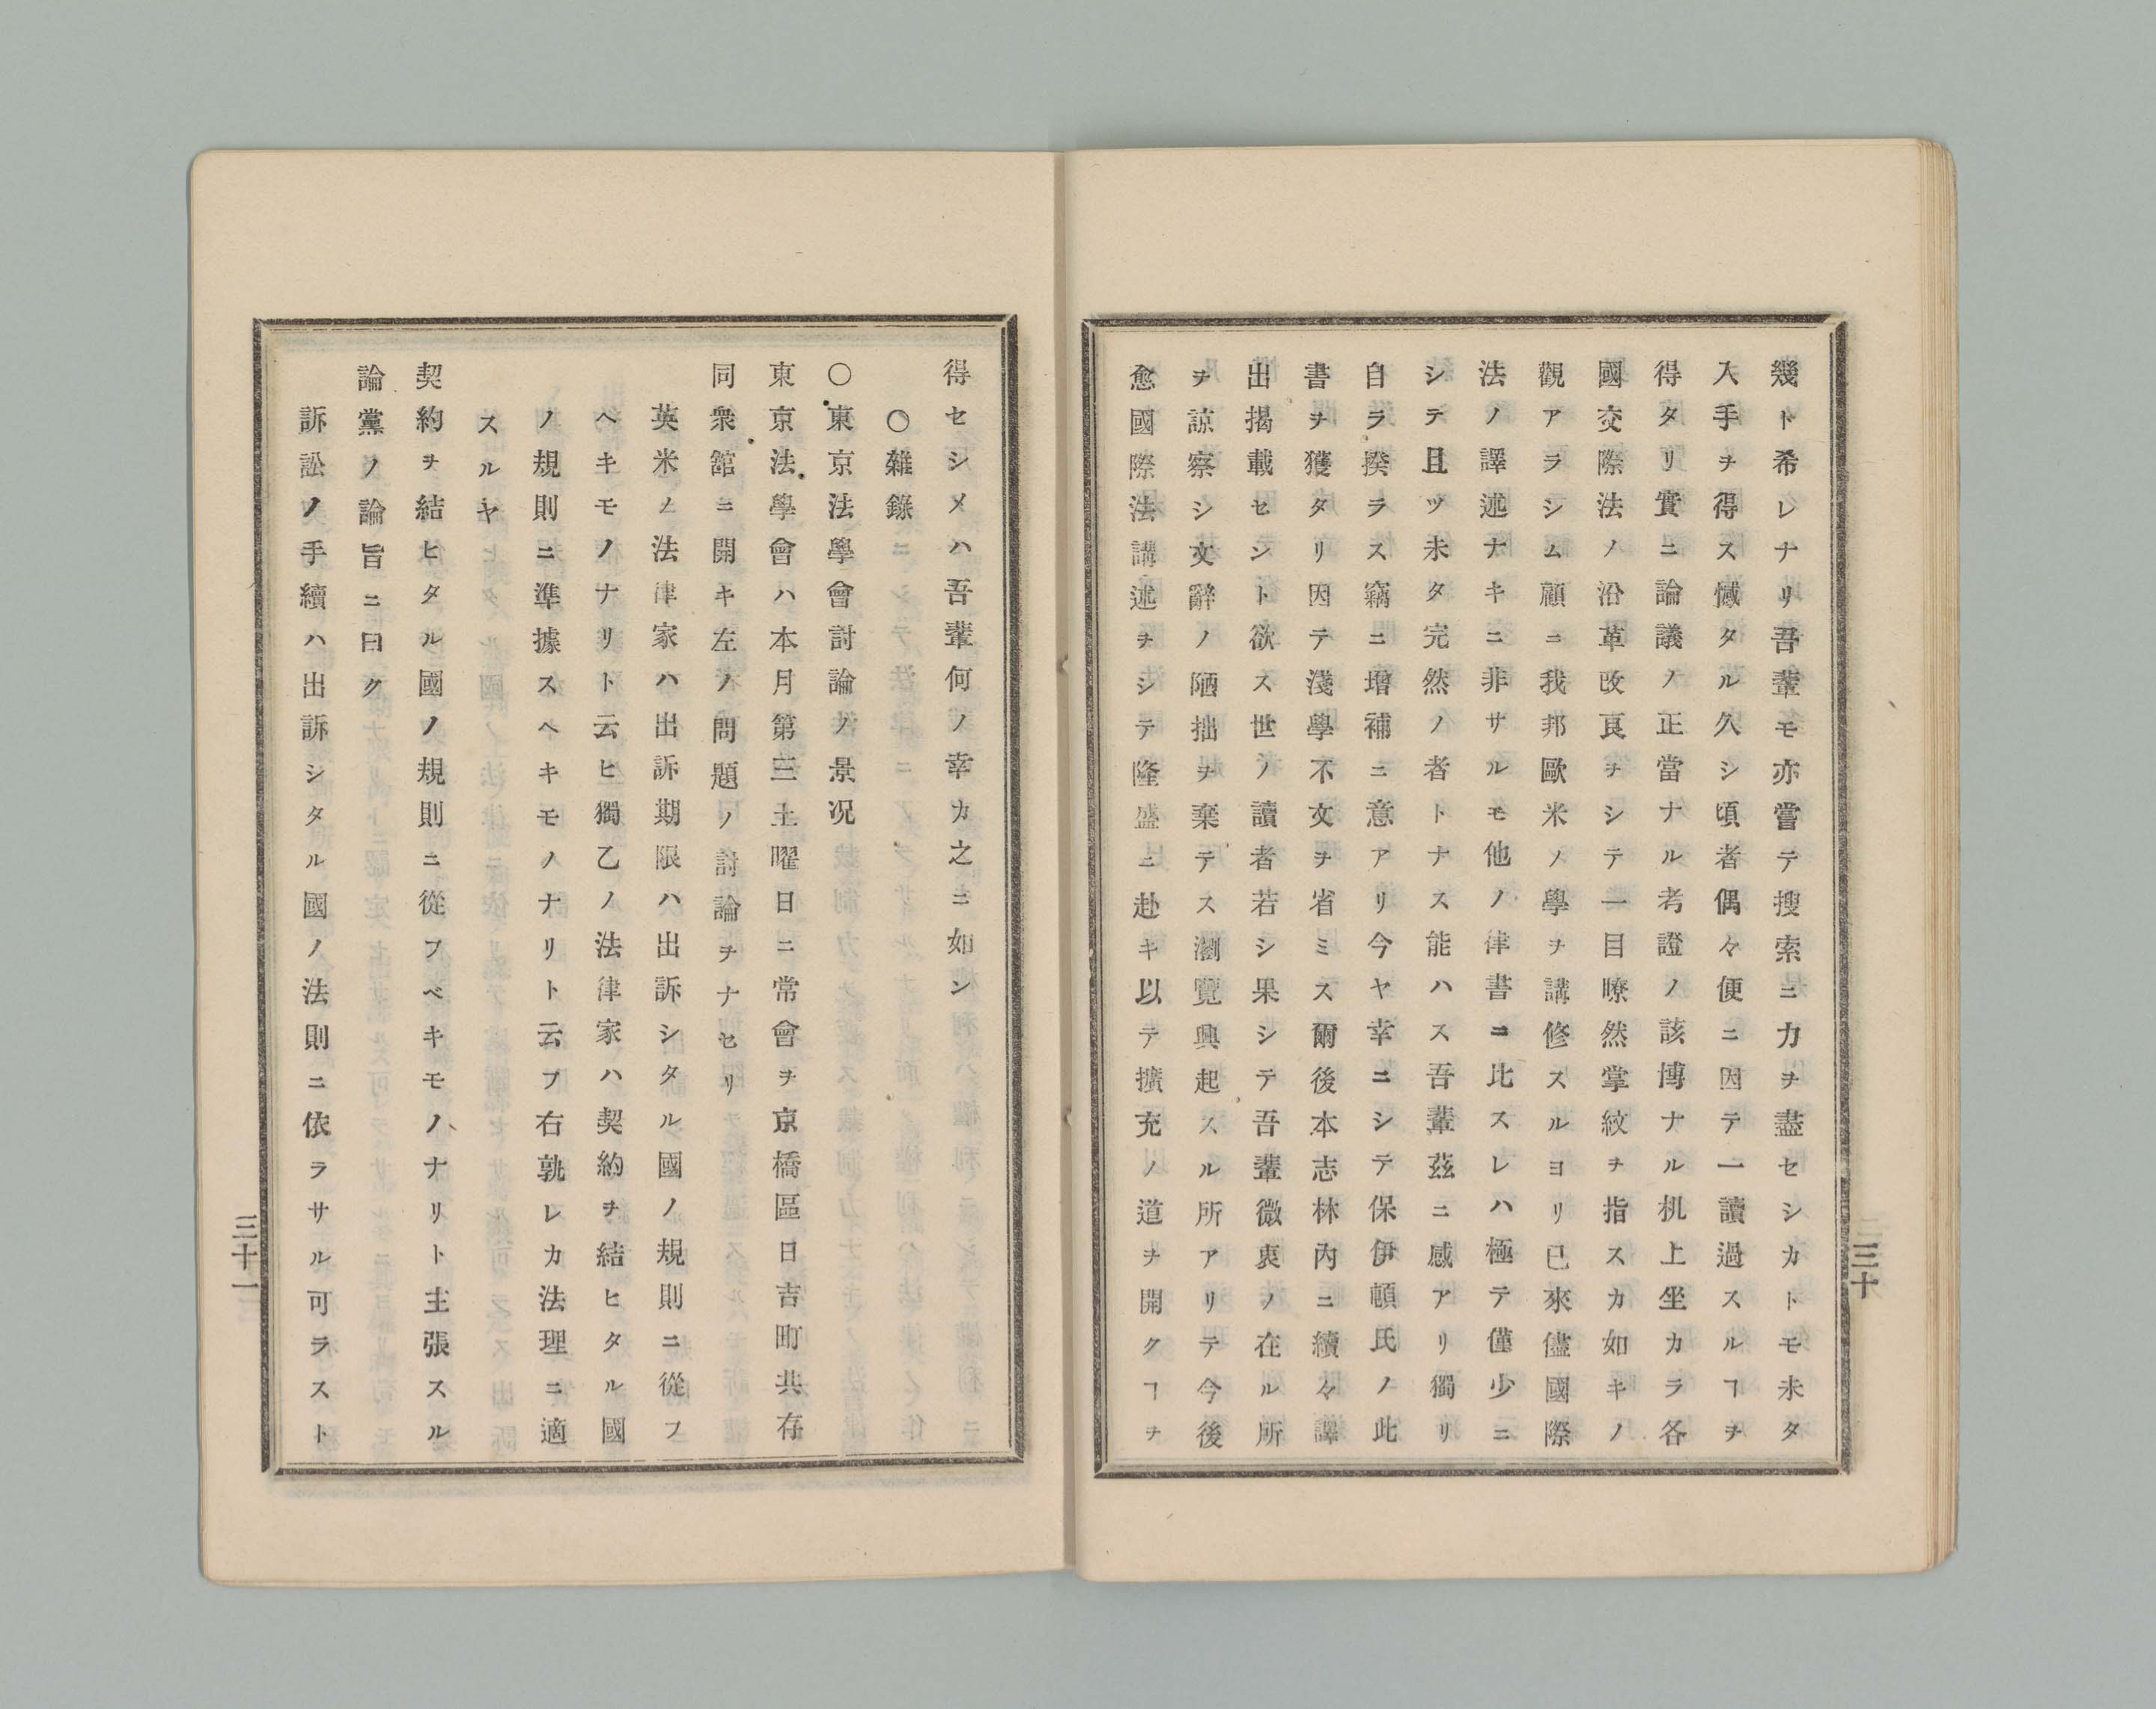 幾ト希レナリ吾輩モ亦嘗テ搜索ニ力ヲ盡セシカトモ未タ
入手ヲ得ス憾タル久シ頃者偶々便ニ因テ一讀過スルヿヲ
得タリ實ニ論議ノ正當ナル考證ノ該博ナル机上坐カラ各
國交際法ノ沿革改良ヲシテ一目瞭然掌紋ヲ指スカ如キノ
觀アラシム顧ニ我邦歐米ノ學ヲ講修スルヨリ已來儘國際
法ノ譯述ナキニ非サルモ他ノ律書ニ比スレハ極テ僅少ニ
シテ且ツ未タ完然ノ者トナス能ハス吾輩茲ニ感アリ獨リ
自ラ揆ラス竊ニ増補ニ意アリ今ヤ幸ニシテ保伊頓氏ノ此
書ヲ獲タリ因テ淺學不文ヲ省ミス爾後本志林内ニ續々譯
出揭載セシト欲ス世ノ讀者若シ果シテ吾輩微衷ノ在ル所
ヲ諒察シ文辭ノ陋拙ヲ棄テス瀏覽興起スル所アリテ今後
愈國際法講述ヲシテ隆盛ニ赴キ以テ擴充ノ道ヲ開クヿヲ
三十
得セシメハ吾輩何ノ幸カ之ニ如ン
○雜錄
○東京法學會討論ノ景況
東京法學會ハ本月第三土曜日ニ常會ヲ京橋區日吉町共存
同衆舘ニ開キ左ノ問題ノ討論ヲナセリ
英米ノ法律家ハ出訴期限ハ出訴シタル國ノ規則ニ從フ
ヘキモノナリト云ヒ獨乙ノ法律家ハ契約ヲ結ヒタル國
ノ規則ニ準據スヘキモノナリト云フ右孰レカ法理ニ適
スルヤ
契約ヲ結ヒタル國ノ規則ニ從フベキモノナリト主張スル
論黨ノ論旨ニ曰ク
訴訟ノ手續ハ出訴シタル國ノ法則ニ依ラサル可ラスト
三十一